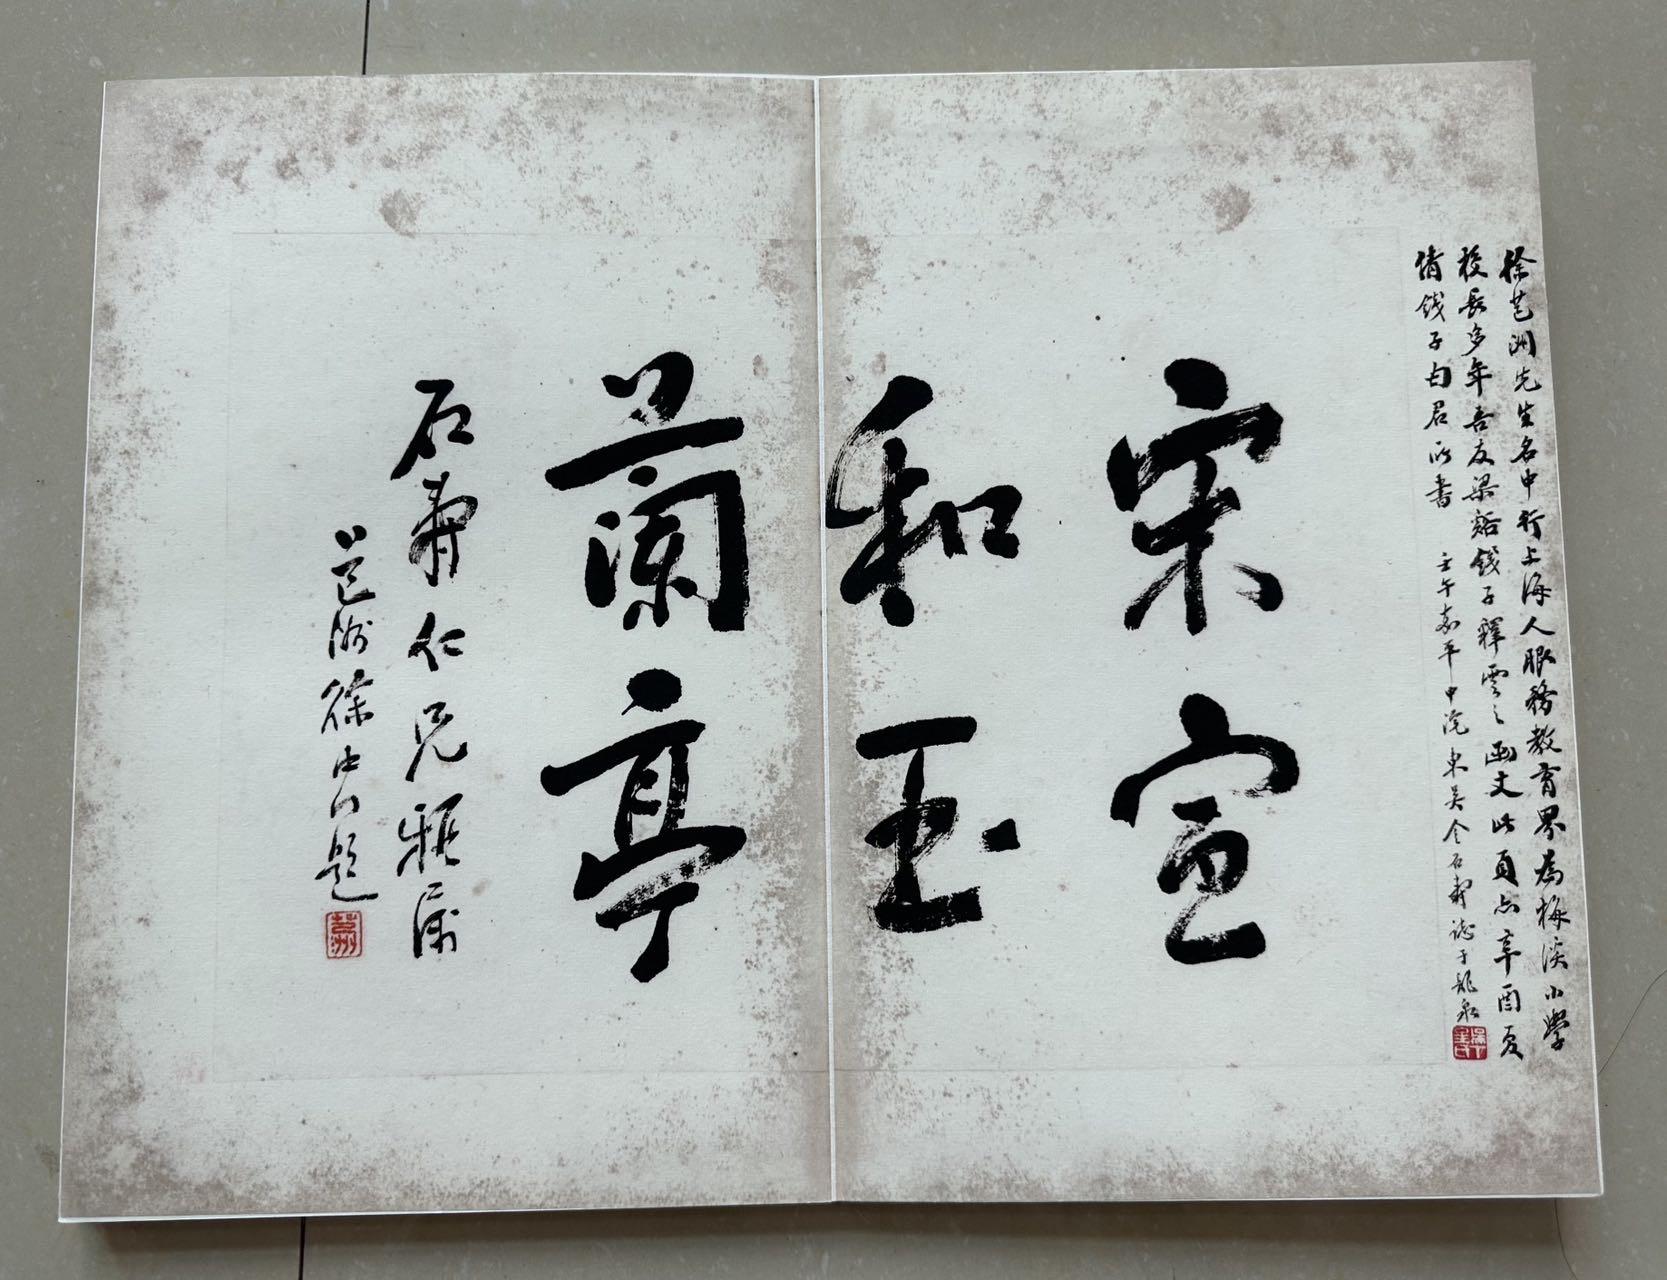 徐芑洲先生名中行上海人服務教育界為梅溪小學
校長多年吾友梁谿錢子釋雲之函丈此頁亦辛酉夏
倩錢子匄君所書
壬午嘉平中浣東吳仝石壽誌于龍泉
宋宣
和玉
蘭亭
石壽仁兄雅屬
芑洲徐中行題
芑洲